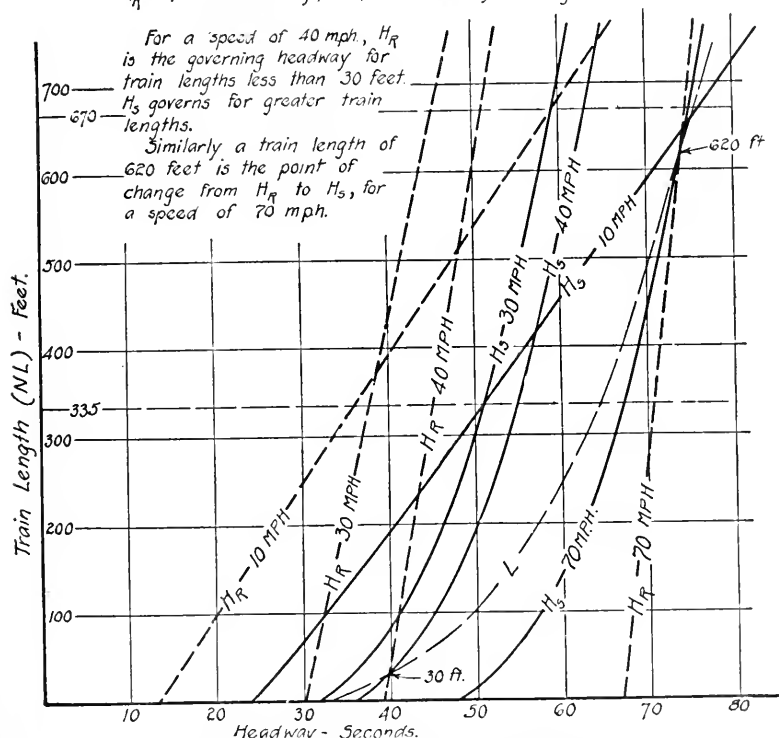 For a speed of 40 mph., HR
is the governing headway for
train lengths less than 30 feet.
HS governs for greater train
lengths.
Similarly a train length of
620 feet is the point of
change from HR to HS, for
a speed of 70 mph.
700
670
600
500
400
335
300
200
100
Train Length (NL) - Feet.
HR - 10 MPH
HR - 30 MPH
HR - 40 MPH
HS - 30 MPH
HS - 40 MPH
HS 10 MPH
L
HS - 70 MPH.
HR - 70 MPH
620 ft
30 ft.
10 20 30 40 50 60 70 80
Headway - Seconds.